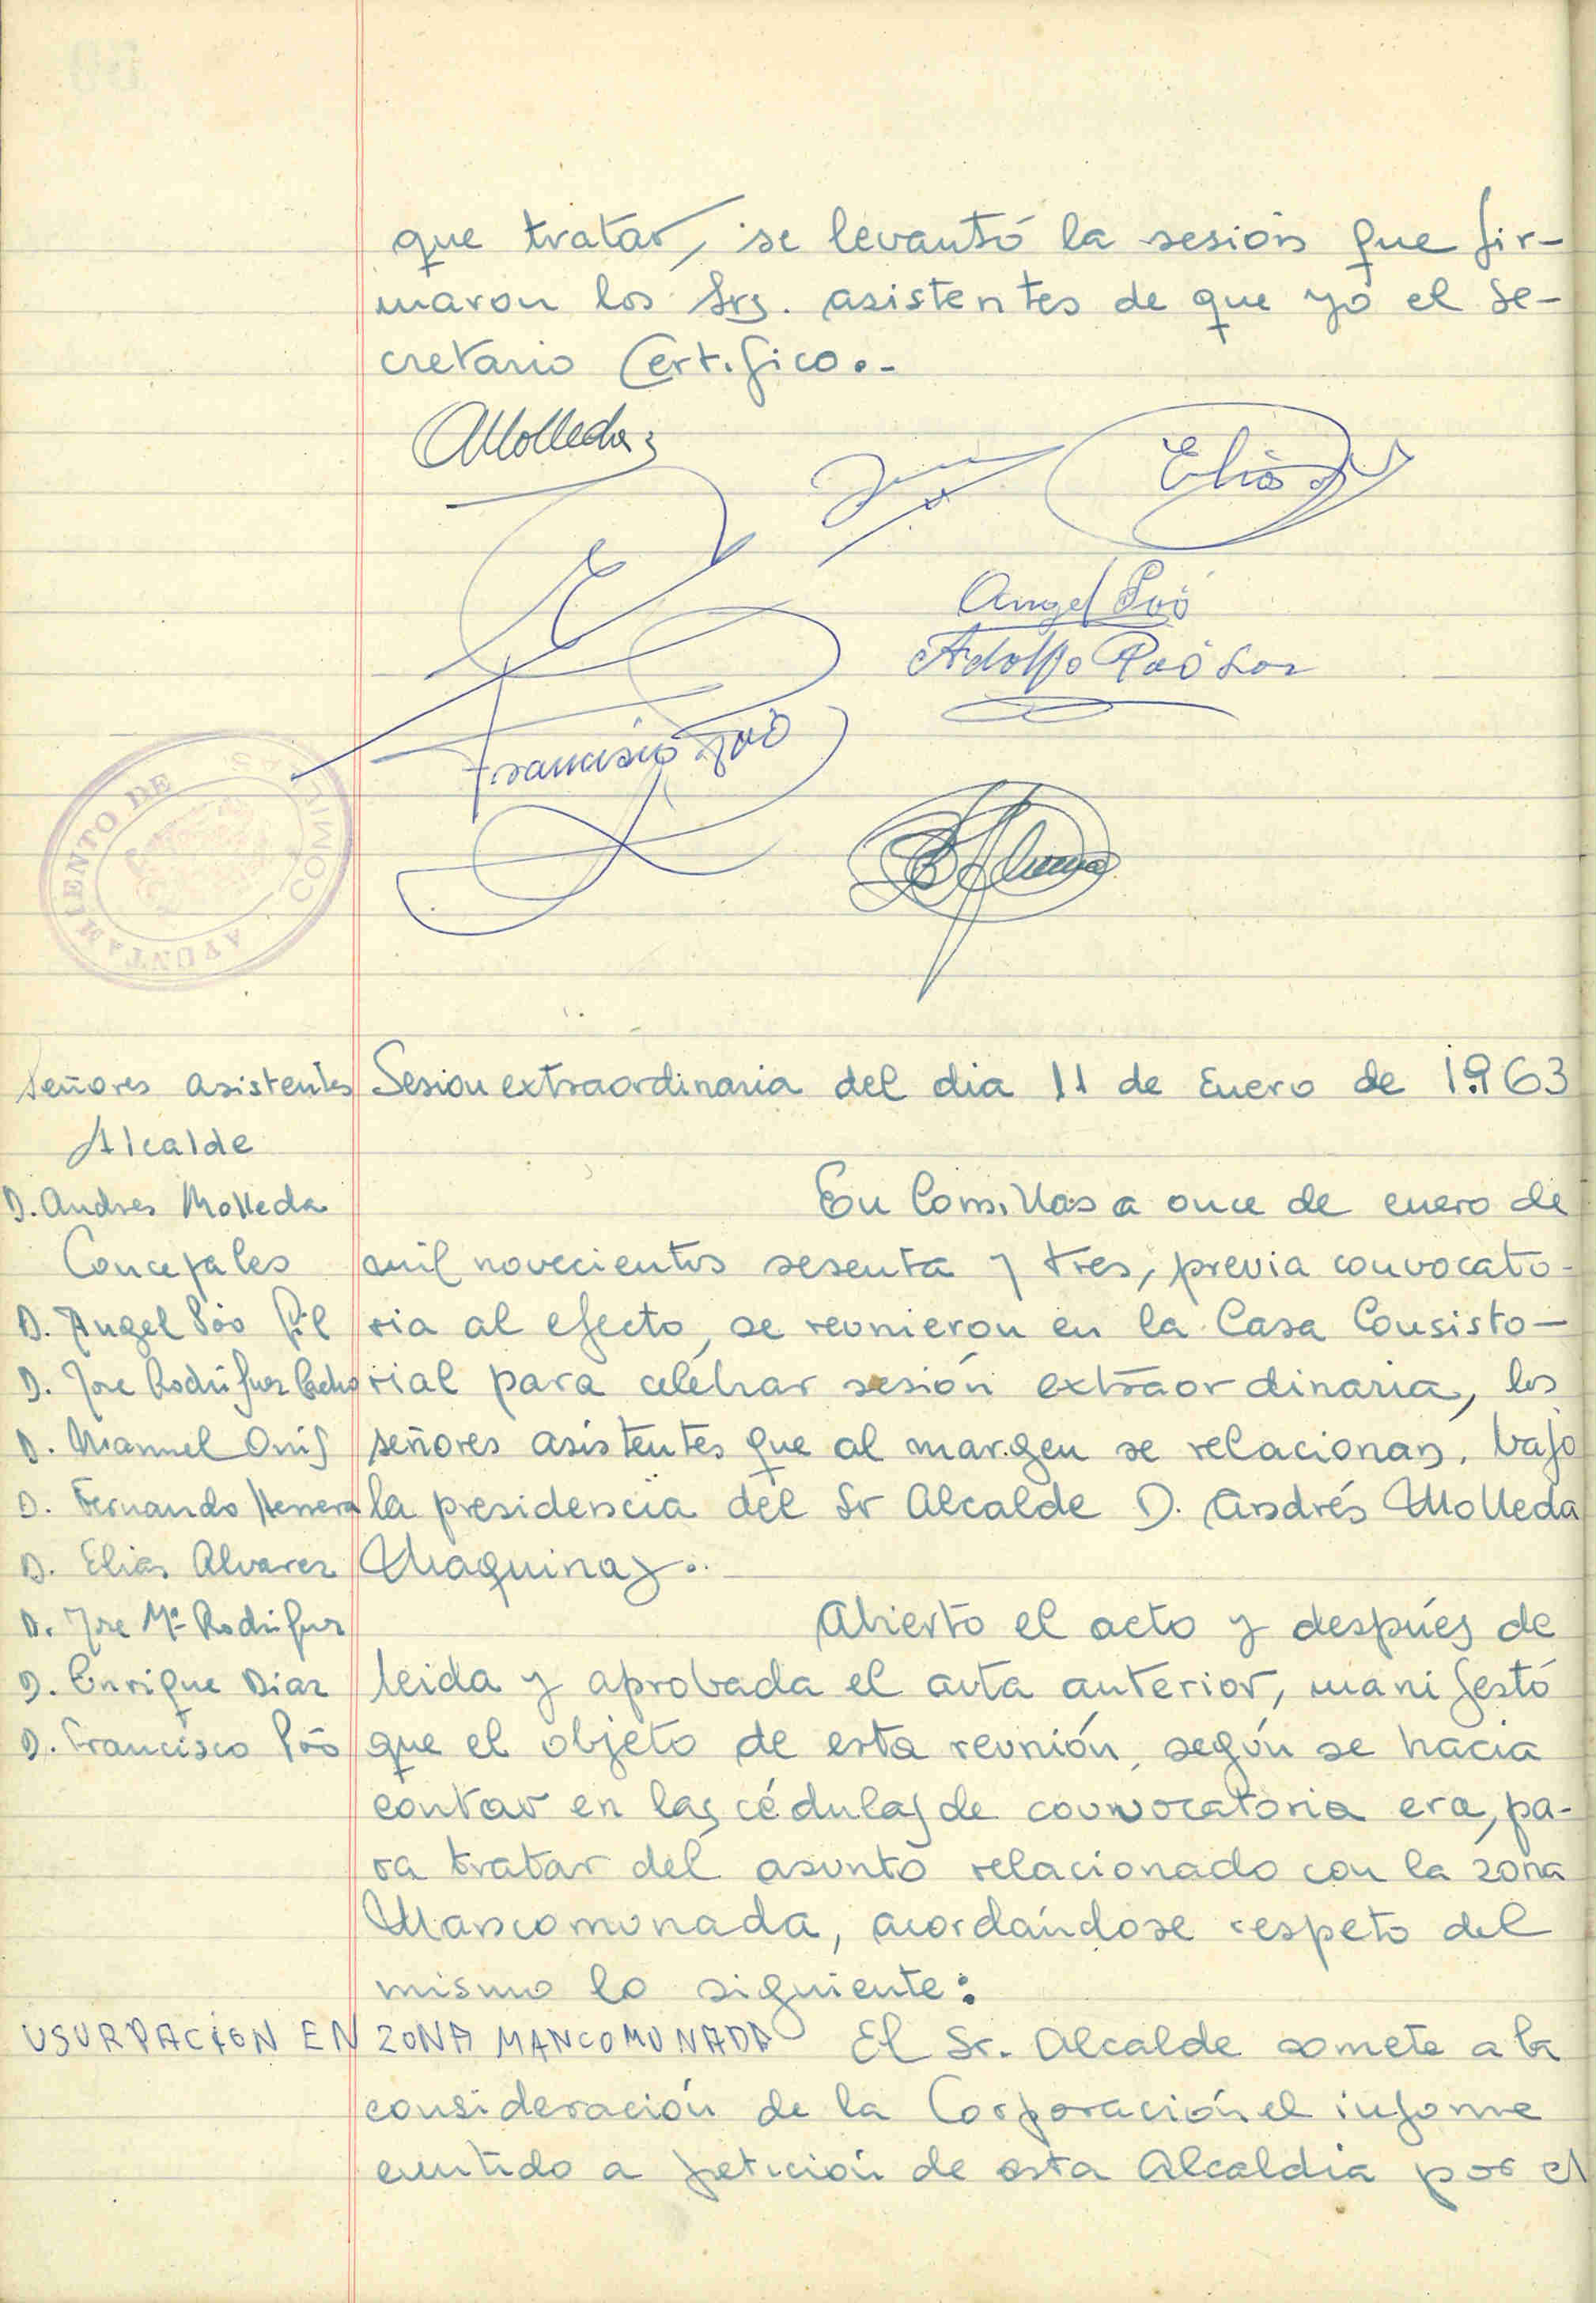 que tratar, se levantó la sesión que fir-
maron los Srs. asistentes de que yo el Se-
cretario Certifico.-
AMolleda
Elias
Angel Póo
Adolfo Póo
Francisco Póo
AYUNTAMIENTO DE COMILLAS
Señores asistentes
Alcalde
D. Andres Molleda
Concejales
D. Angel Póo Gil
D. Jose Rodriguez Cacho
D. Manuel
D. Fernando Herrera
D. Elias Alvarez
D. Jose Mª Rodriguez
D. Enrique Diaz
D. Francisco Póo
Sesion extraordinaria del dia 11 de Enero de 1.963
En Comillas a once de enero de
mil novecientos sesenta y tres, previa convocato-
ria al efecto, se reunieron en la Casa Consisto-
rial para celebrar sesión extraordinaria, los
señores asistentes que al margen se relacionan, bajo
la presidencia del Sr Alcalde D. Andrés Molleda
Maquinay.
Abierto el acto y después de
leida y aprobada el acta anterior, manifestó
que el objeto de esta reunión, según se hacia
contar en las cédulas de convocatoria era, pa-
ra tratar del asunto relacionado con la zona
Mancomunada, acordándose respeto del
mismo lo siguiente:
USURPACION EN ZONA MANCOMUNADA El Sr. Alcalde somete a la
consideración de la Corporación el informe
emitido a petición de esta Alcaldia por el